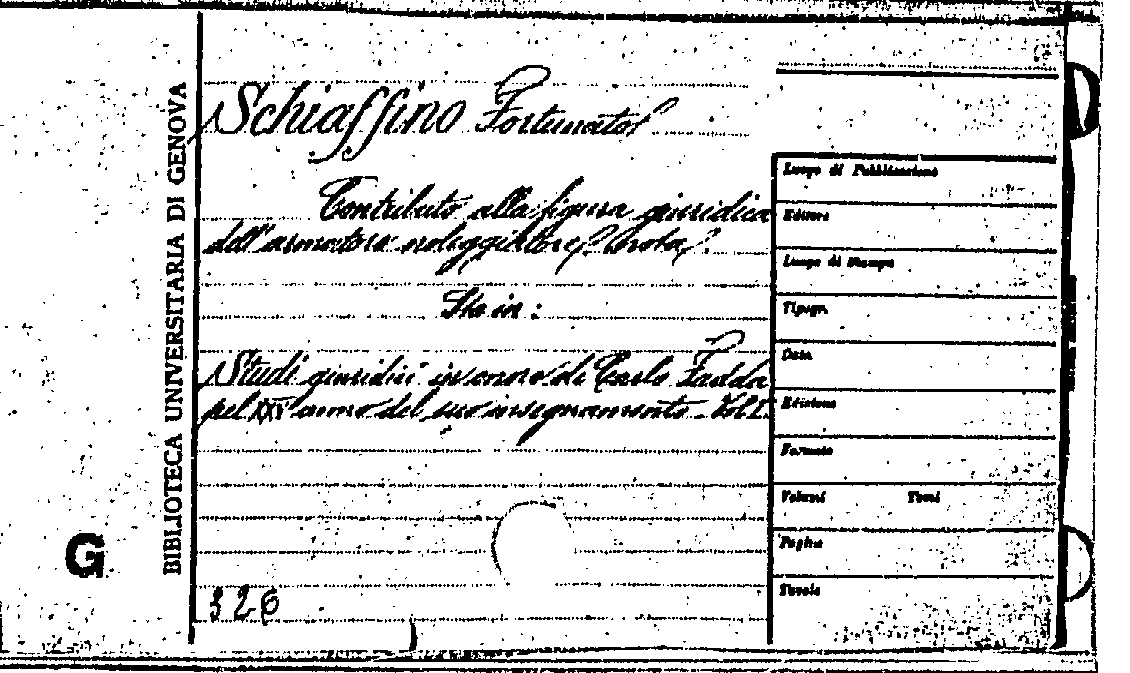 BIBLIOTECA UNIVERSITARIA DI GENOVA
G
Schiaffino Fortunato
Contributo alla figura giuridica
dell'armatore noleggiatore. Nota.
Sta in:
Studi giuridici in onore di Carlo Fadda
pel XXV anno del suo insegnamento. Vol I.
326
Luogo di Pubblicazione
Editore
Luogo di Stampa
Tipogr.
Data
Edizione
Formato
Volumi Tomi
Pagine
Tavole